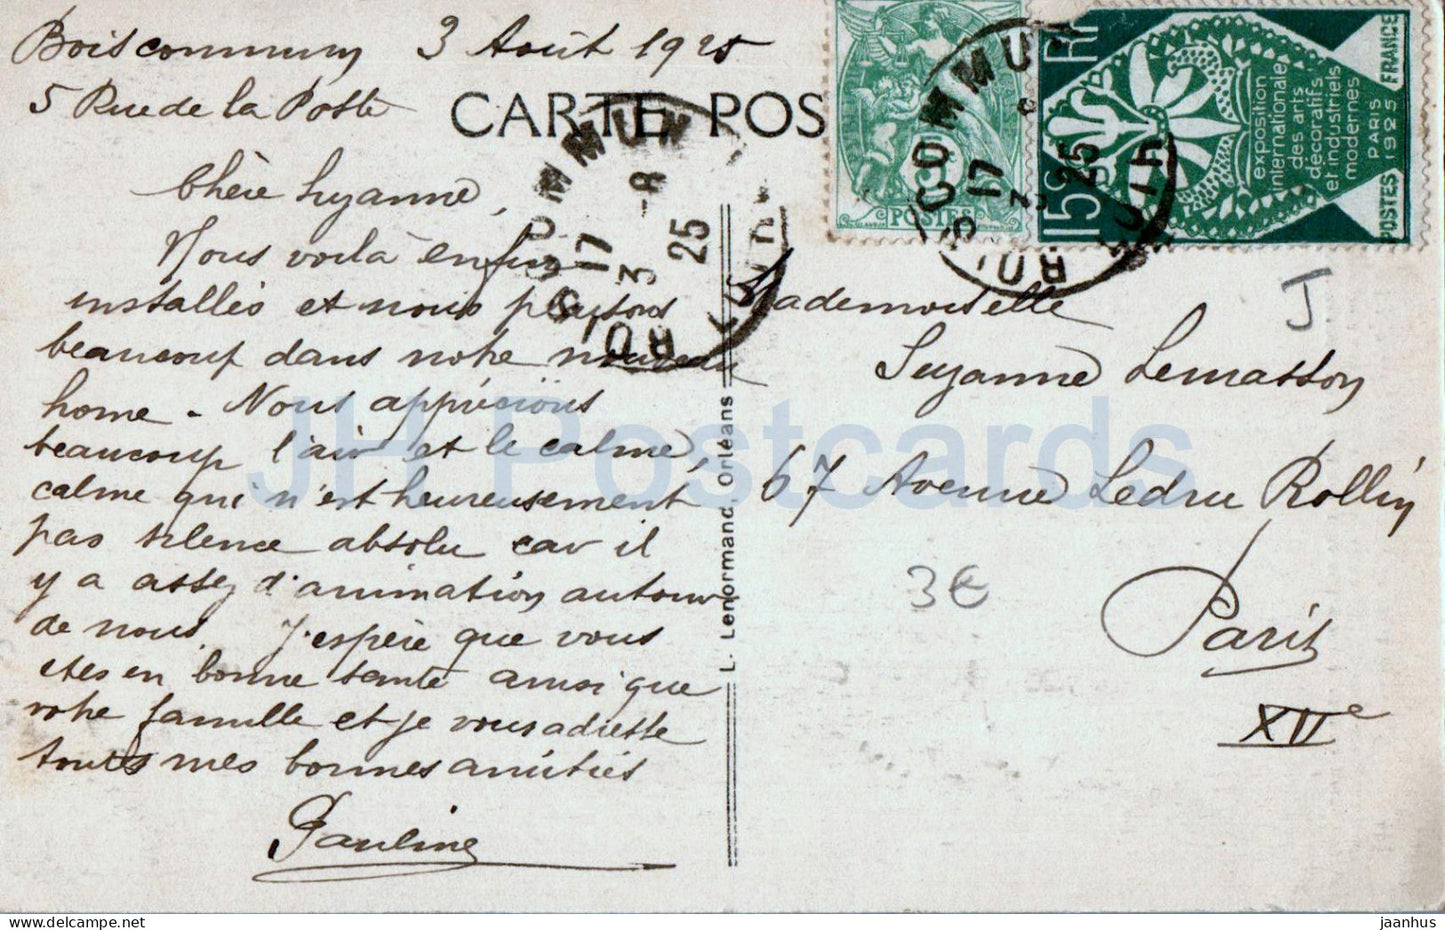 Boiscommun 3 Août 1925
5 Rue de la Poste
CARTE POS
Chère Suzanne,
Nous voilà enfin
installés et nous plaisons
beaucoup dans notre nouveau
home - Nous apprécions
beaucoup l'air et le calme,
calme qui n'est heureusement
pas silence absolu car il
y a assez d'animation autour
de nous. J'espère que vous
êtes en bonne santé ainsi que
votre famille et je vous adresse
toutes mes bonnes amitiés
Pauline
L. Lenormand, Orléans
POSTES
RF
15c
exposition
internationale
des arts
décoratifs
et industriels
modernes
PARIS
1925
POSTES
FRANCE
BOISCOMMUN
17
3 - 8
25
LOIRET
BOISCOMMUN
17
3 8
25
LOIRET
J
Mademoiselle
Suzanne Lemasson
67 Avenue Ledru Rollin
Paris
XIIe
3€
JH Postcards
delcampe.net
jaanhus